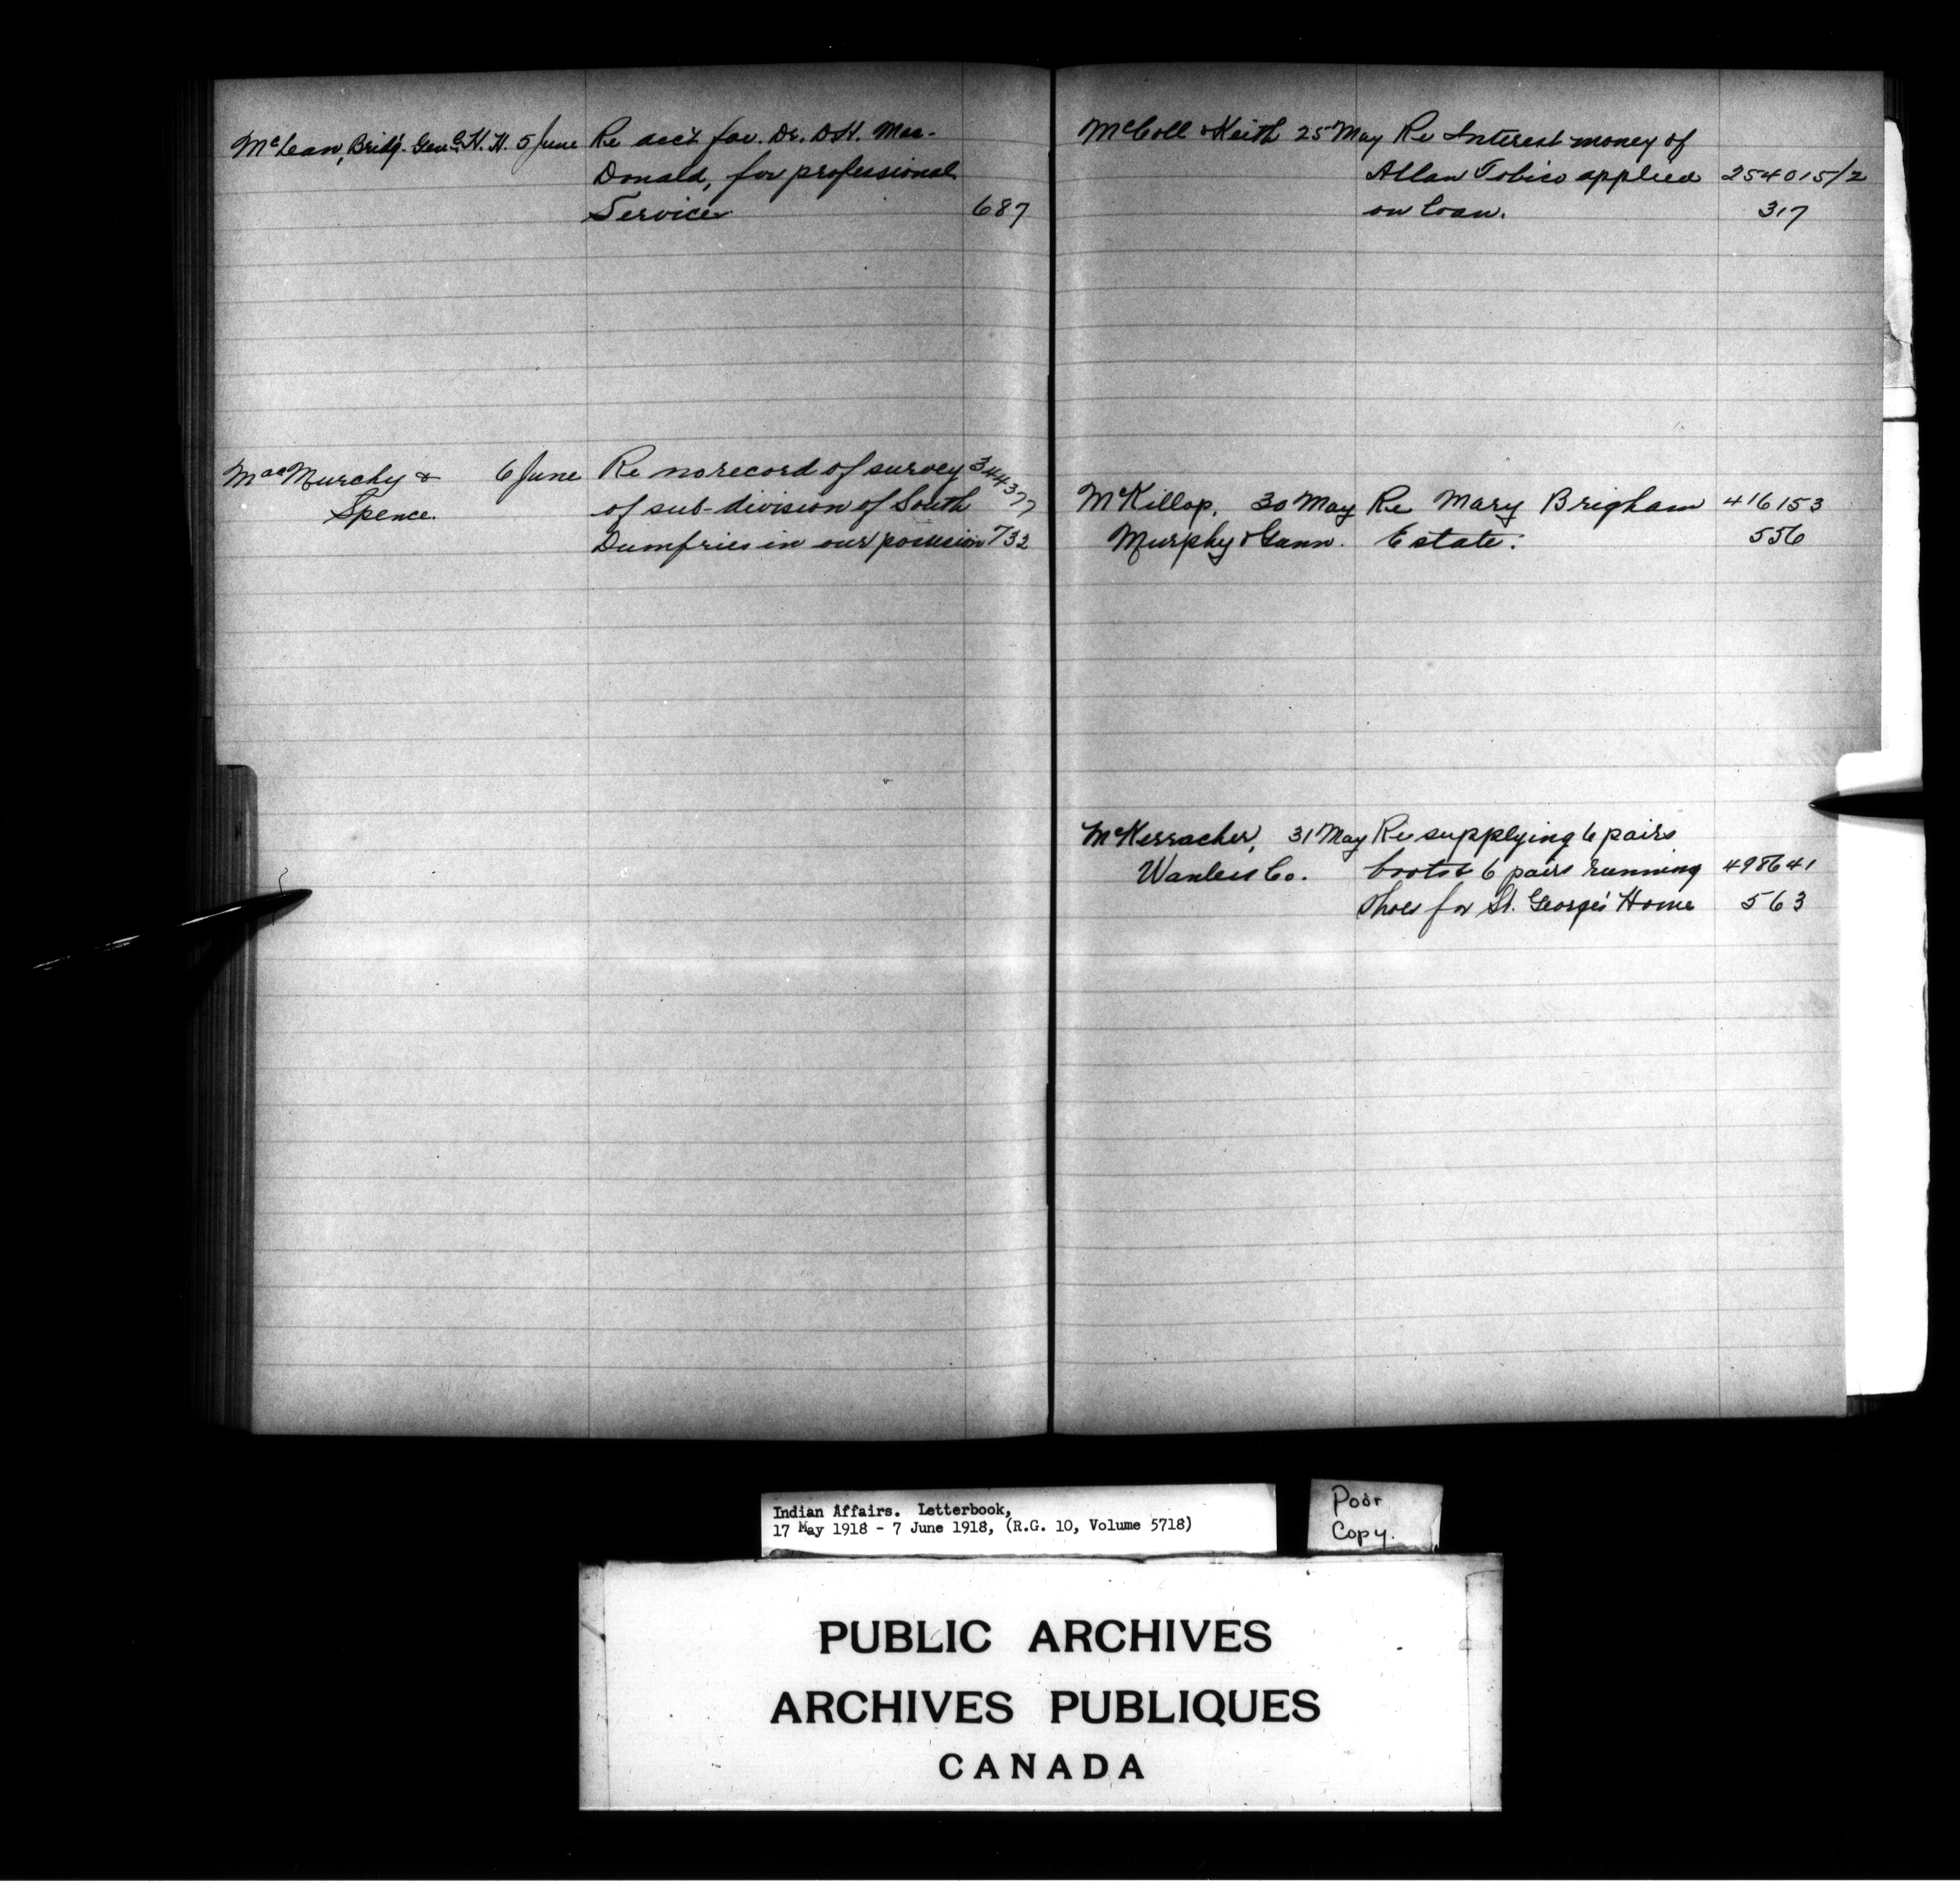 McLean, Brig. Genl. H. H. 5 June Re acct for Dr. D.H. Mac-
Donald, for professional
Services 687
MacMurchy & 6 June Re no record of survey 344377
Spence. of sub-division of South
Dumfries in our possession 732
McColl & Keith 25 May Re Interest money of
Allan Tobico applied 254015/2
on loan. 317
McKillop, 30 May Re Mary Brigham 416153
Murphy & Gunn. Estate: 556
McKerracher, 31 May Re supplying 6 pairs
Wanless Co. boots & 6 pairs running 498641
Shoes for St. George's Home 563
Indian Affairs. Letterbook,
17 May 1918 - 7 June 1918, (R.G. 10, Volume 5718)
Poor
Copy.
PUBLIC ARCHIVES
ARCHIVES PUBLIQUES
CANADA